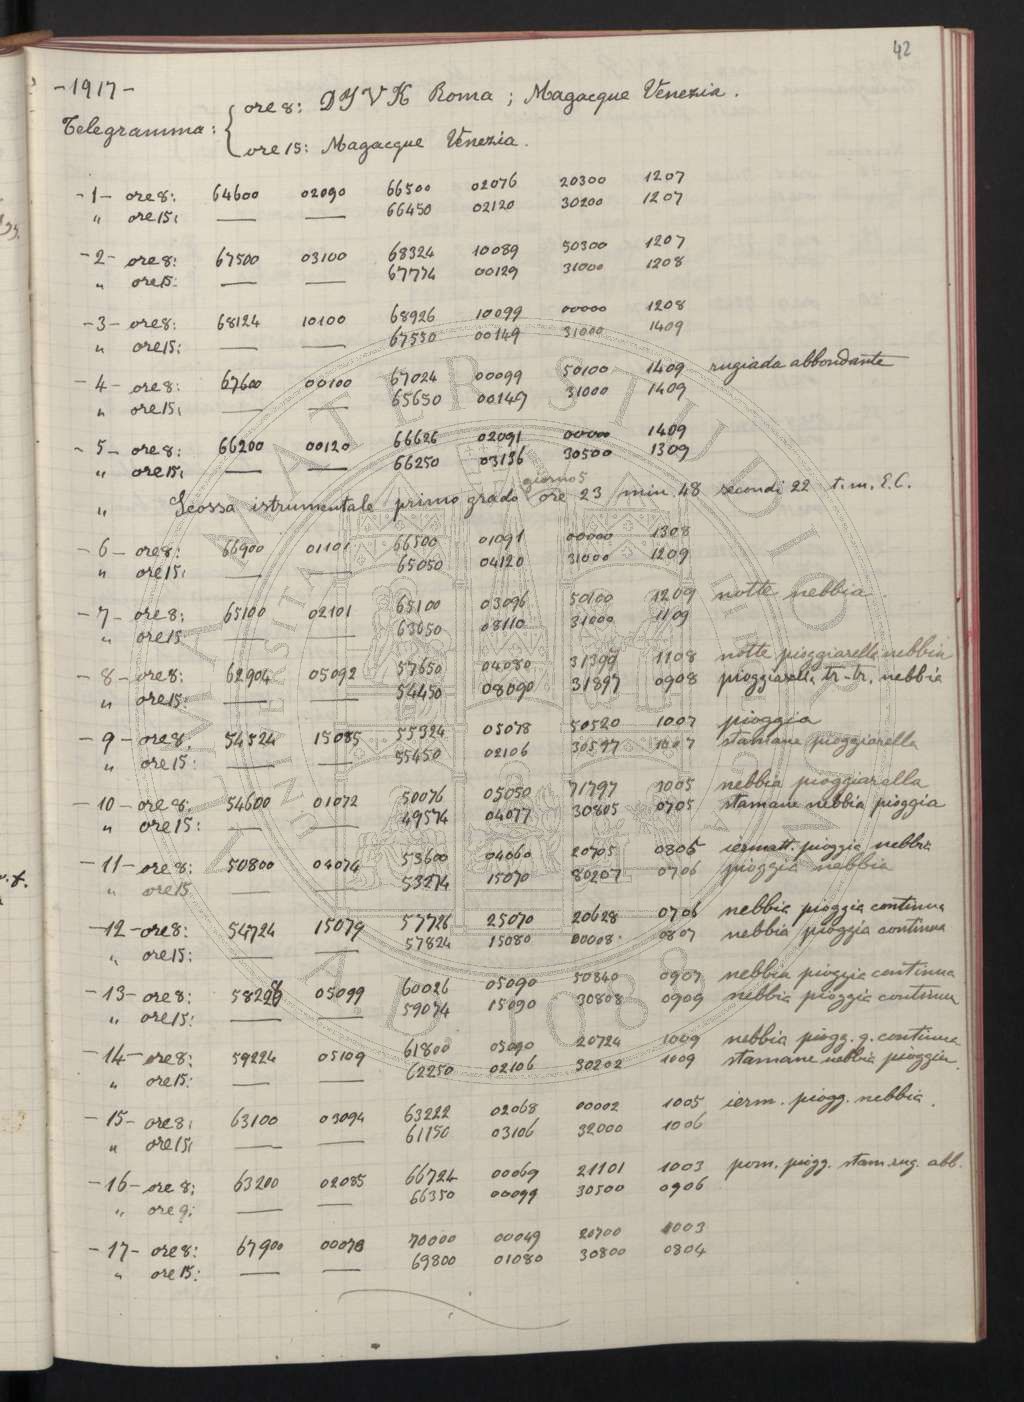 42
-1917-
Telegramma: ore 8: DYVK Roma ; Magacque Venezia.
ore 15: Magacque Venezia.
-1- ore 8: 64600 02090 66500 02076 20300 1207
" ore 15: — — 66450 02120 30200 1207
-2- ore 8: 67500 03100 68324 10089 50300 1207
" ore 15: — — 67774 00129 31000 1208
-3- ore 8: 68124 10100 68926 10099 00000 1208
" ore 15: — — 67550 00149 31000 1409
-4- ore 8: 67600 00100 67024 00099 50100 1409 rugiada abbondante
" ore 15: — — 65650 00149 31000 1409
-5- ore 8: 66200 00120 66626 02091 00000 1409
" ore 15: — — 66250 03136 30500 1309
" Scossa istrumentale primo grado giorno 5 ore 23 min. 48 secondi 22 t.m.E.C.
-6- ore 8: 66900 01101 66500 01091 00000 1308
" ore 15: — — 65050 04120 31000 1209
-7- ore 8: 65100 02101 65100 03096 50100 1209 notte nebbia.
" ore 15: — — 63650 08110 31000 1109
-8- ore 8: 62904 05092 57650 04080 31399 1108 notte pioggiarella nebbia
" ore 15: — — 54450 08090 31897 0908 pioggiarella tr-tr. nebbia
-9- ore 8. 54524 15085 55324 05078 50520 1007 pioggia
" ore 15: — — 55450 02106 30597 1007 stamane pioggiarella
-10- ore 8: 54600 01072 50076 05050 71797 1005 nebbia pioggiarella
" ore 15: — — 49574 04077 30805 0705 stamane nebbia pioggia
-11- ore 8: 50800 04074 53600 04060 20705 0806 iermatt. pioggia nebbia
" ore 15 — — 53274 15070 80207 0706 pioggia nebbia
-12- ore 8: 54724 15079 57726 25070 20628 0706 nebbia pioggia continua
" ore 15: — — 57824 15080 00008 0807 nebbia pioggia continua
-13- ore 8: 05099 60026 05090 50840 0907 nebbia pioggia continua
" ore 15: — — 59074 15090 30808 0909 nebbia pioggia continua
-14- ore 8: 59224 05109 61800 05090 20724 1009 nebbia piogg. g. continua
" ore 15: — — 62250 02106 30202 1009 stamane nebbia pioggia.
-15- ore 8: 63100 03094 63222 02068 00002 1005 ierm. piogg. nebbia.
" ore 15: — — 61150 03106 32000 1006
-16- ore 8: 63200 02085 66724 00069 21101 1003 pom. piogg. stam. rug. abb.
" ore 9: — — 66350 00099 30500 0906
-17- ore 8: 67900 00078 70000 00049 20700 1003
" ore 15: — — 69800 01080 30800 0804
ALMA MATER STUDIORUM
UNIVERSITA
A.D. 1088